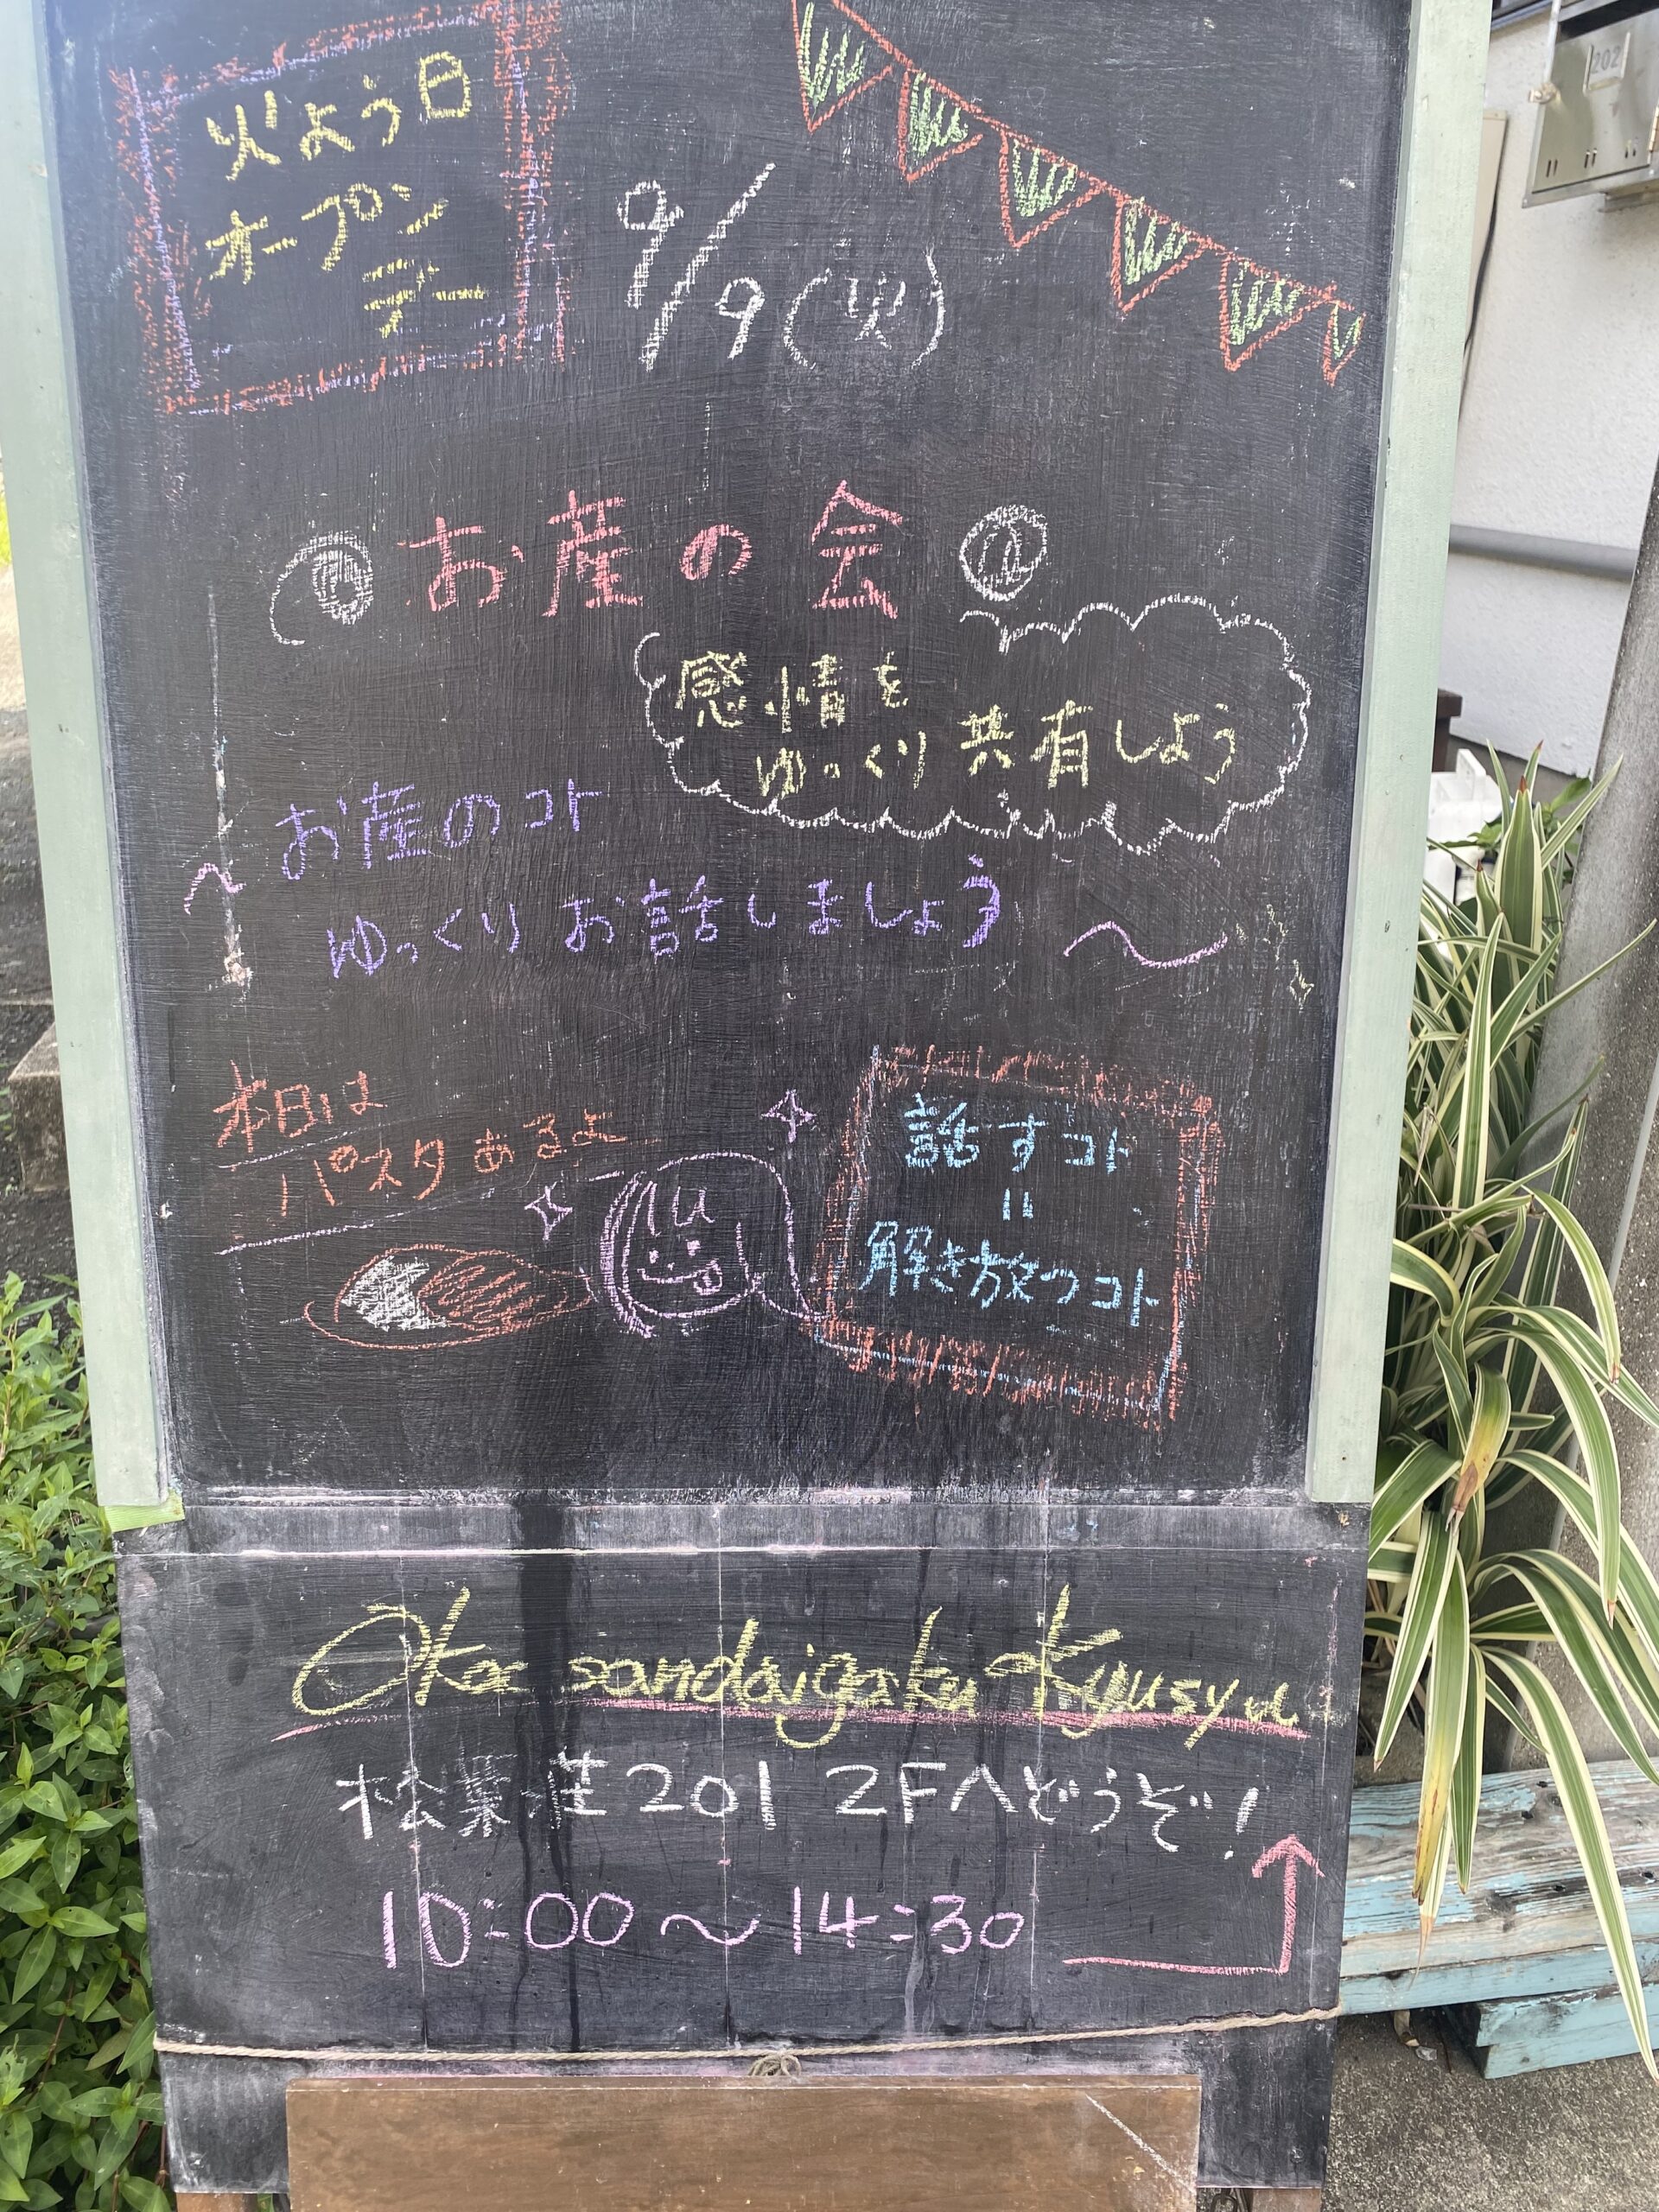 火よう日
オープン
デー
9/9(火)
お産の会
感情を
ゆっくり共有しよう
お産のコト
ゆっくりお話しましょう〜
本日は
パスタあるよ
話すコト
=
解き放つコト
Okasandaigaku Kyusyu
松葉荘201 2Fへどうぞ!
10:00〜14:30
202